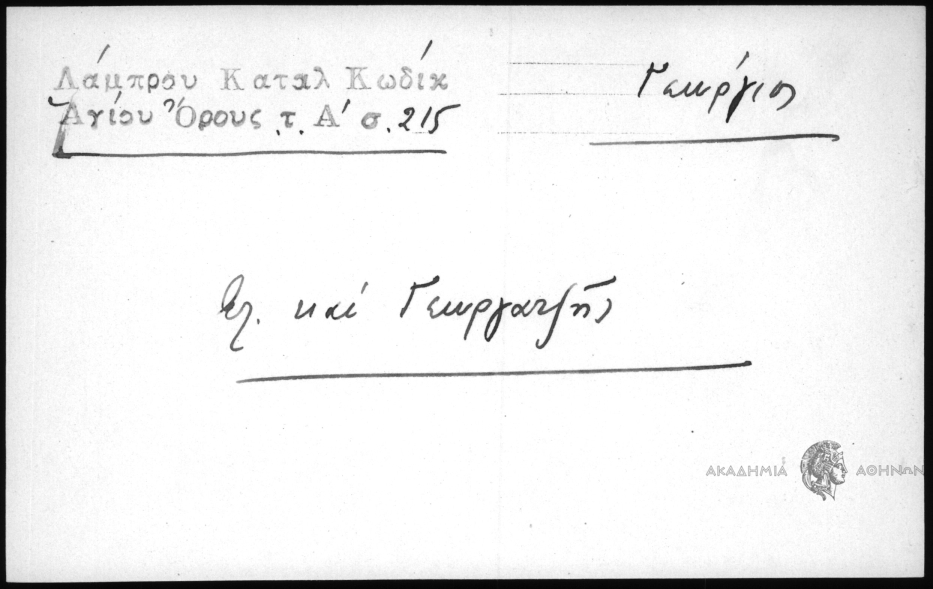 Λάμπρου Καταλ Κωδίκ
Ἁγίου Ὄρους τ. Α' σ. 215
Γεώργιος
βλ. καὶ Γεωργατζῆς
ΑΚΑΔΗΜΙΑ ΑΘΗΝΩΝ